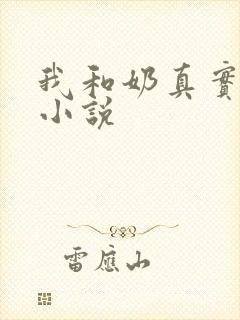 我和奶真實
小說
雷應山